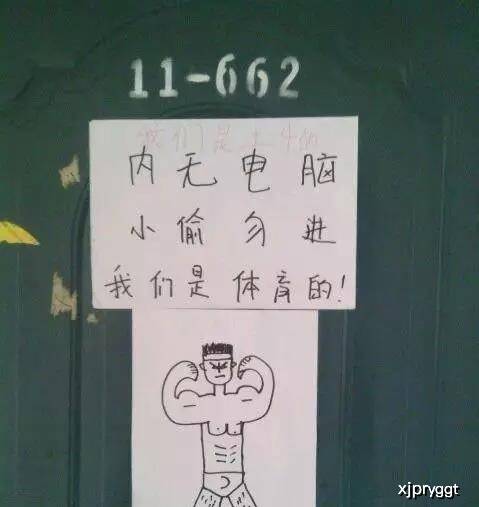 11-662
我们是
内无电脑
小偷勿进
我们是体育的!
xjpryggt